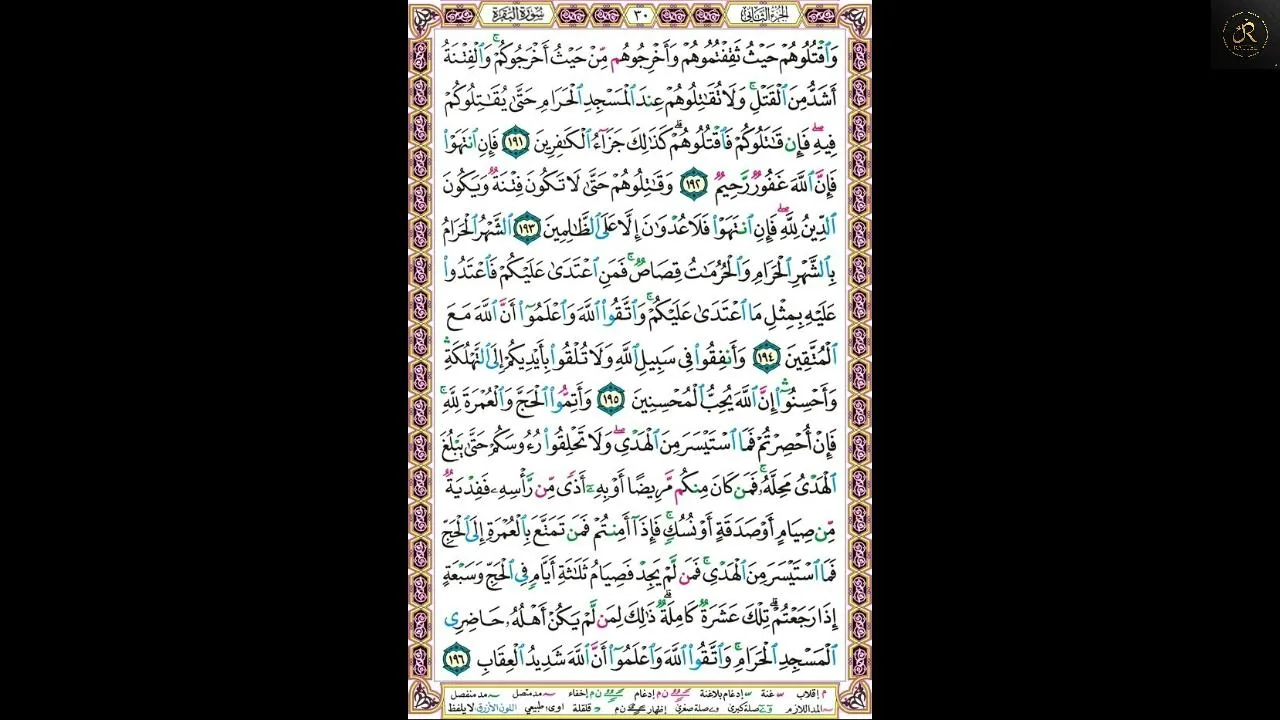 الجزء الثاني ٣٠ سورة البقرة
وَٱقْتُلُوهُمْ حَيْثُ ثَقِفْتُمُوهُمْ وَأَخْرِجُوهُم مِّنْ حَيْثُ أَخْرَجُوكُمْۚ وَٱلْفِتْنَةُ
أَشَدُّ مِنَ ٱلْقَتْلِۚ وَلَا تُقَٰتِلُوهُمْ عِندَ ٱلْمَسْجِدِ ٱلْحَرَامِ حَتَّىٰ يُقَٰتِلُوكُمْ
فِيهِۖ فَإِن قَٰتَلُوكُمْ فَٱقْتُلُوهُمْۗ كَذَٰلِكَ جَزَآءُ ٱلْكَٰفِرِينَ ١٩١ فَإِنِ ٱنتَهَوْا۟
فَإِنَّ ٱللَّهَ غَفُورٌ رَّحِيمٌ ١٩٢ وَقَٰتِلُوهُمْ حَتَّىٰ لَا تَكُونَ فِتْنَةٌ وَيَكُونَ
ٱلدِّينُ لِلَّهِۖ فَإِنِ ٱنتَهَوْا۟ فَلَا عُدْوَٰنَ إِلَّا عَلَى ٱلظَّٰلِمِينَ ١٩٣ ٱلشَّهْرُ ٱلْحَرَامُ
بِٱلشَّهْرِ ٱلْحَرَامِ وَٱلْحُرُمَٰتُ قِصَاصٌۚ فَمَنِ ٱعْتَدَىٰ عَلَيْكُمْ فَٱعْتَدُوا۟
عَلَيْهِ بِمِثْلِ مَا ٱعْتَدَىٰ عَلَيْكُمْۚ وَٱتَّقُوا۟ ٱللَّهَ وَٱعْلَمُوٓا۟ أَنَّ ٱللَّهَ مَعَ
ٱلْمُتَّقِينَ ١٩٤ وَأَنفِقُوا۟ فِى سَبِيلِ ٱللَّهِ وَلَا تُلْقُوا۟ بِأَيْدِيكُمْ إِلَى ٱلتَّهْلُكَةِۛ
وَأَحْسِنُوٓا۟ۛ إِنَّ ٱللَّهَ يُحِبُّ ٱلْمُحْسِنِينَ ١٩٥ وَأَتِمُّوا۟ ٱلْحَجَّ وَٱلْعُمْرَةَ لِلَّهِۚ
فَإِنْ أُحْصِرْتُمْ فَمَا ٱسْتَيْسَرَ مِنَ ٱلْهَدْىِۖ وَلَا تَحْلِقُوا۟ رُءُوسَكُمْ حَتَّىٰ يَبْلُغَ
ٱلْهَدْىُ مَحِلَّهُۥۚ فَمَن كَانَ مِنكُم مَّرِيضًا أَوْ بِهِۦٓ أَذًى مِّن رَّأْسِهِۦ فَفِدْيَةٌ
مِّن صِيَامٍ أَوْ صَدَقَةٍ أَوْ نُسُكٍۚ فَإِذَآ أَمِنتُمْ فَمَن تَمَتَّعَ بِٱلْعُمْرَةِ إِلَى ٱلْحَجِّ
فَمَا ٱسْتَيْسَرَ مِنَ ٱلْهَدْىِۚ فَمَن لَّمْ يَجِدْ فَصِيَامُ ثَلَٰثَةِ أَيَّامٍ فِى ٱلْحَجِّ وَسَبْعَةٍ
إِذَا رَجَعْتُمْۗ تِلْكَ عَشَرَةٌ كَامِلَةٌۗ ذَٰلِكَ لِمَن لَّمْ يَكُنْ أَهْلُهُۥ حَاضِرِى
ٱلْمَسْجِدِ ٱلْحَرَامِۚ وَٱتَّقُوا۟ ٱللَّهَ وَٱعْلَمُوٓا۟ أَنَّ ٱللَّهَ شَدِيدُ ٱلْعِقَابِ ١٩٦
م إقلاب غنة إدغام بلاغنة ن م إدغام ن م إخفاء مد متصل مد منفصل
المد اللازم صلة كبرى صلة صغرى إظهار ن م قلقلة اوى طبيعي اللون الأزرق لا يلفظ